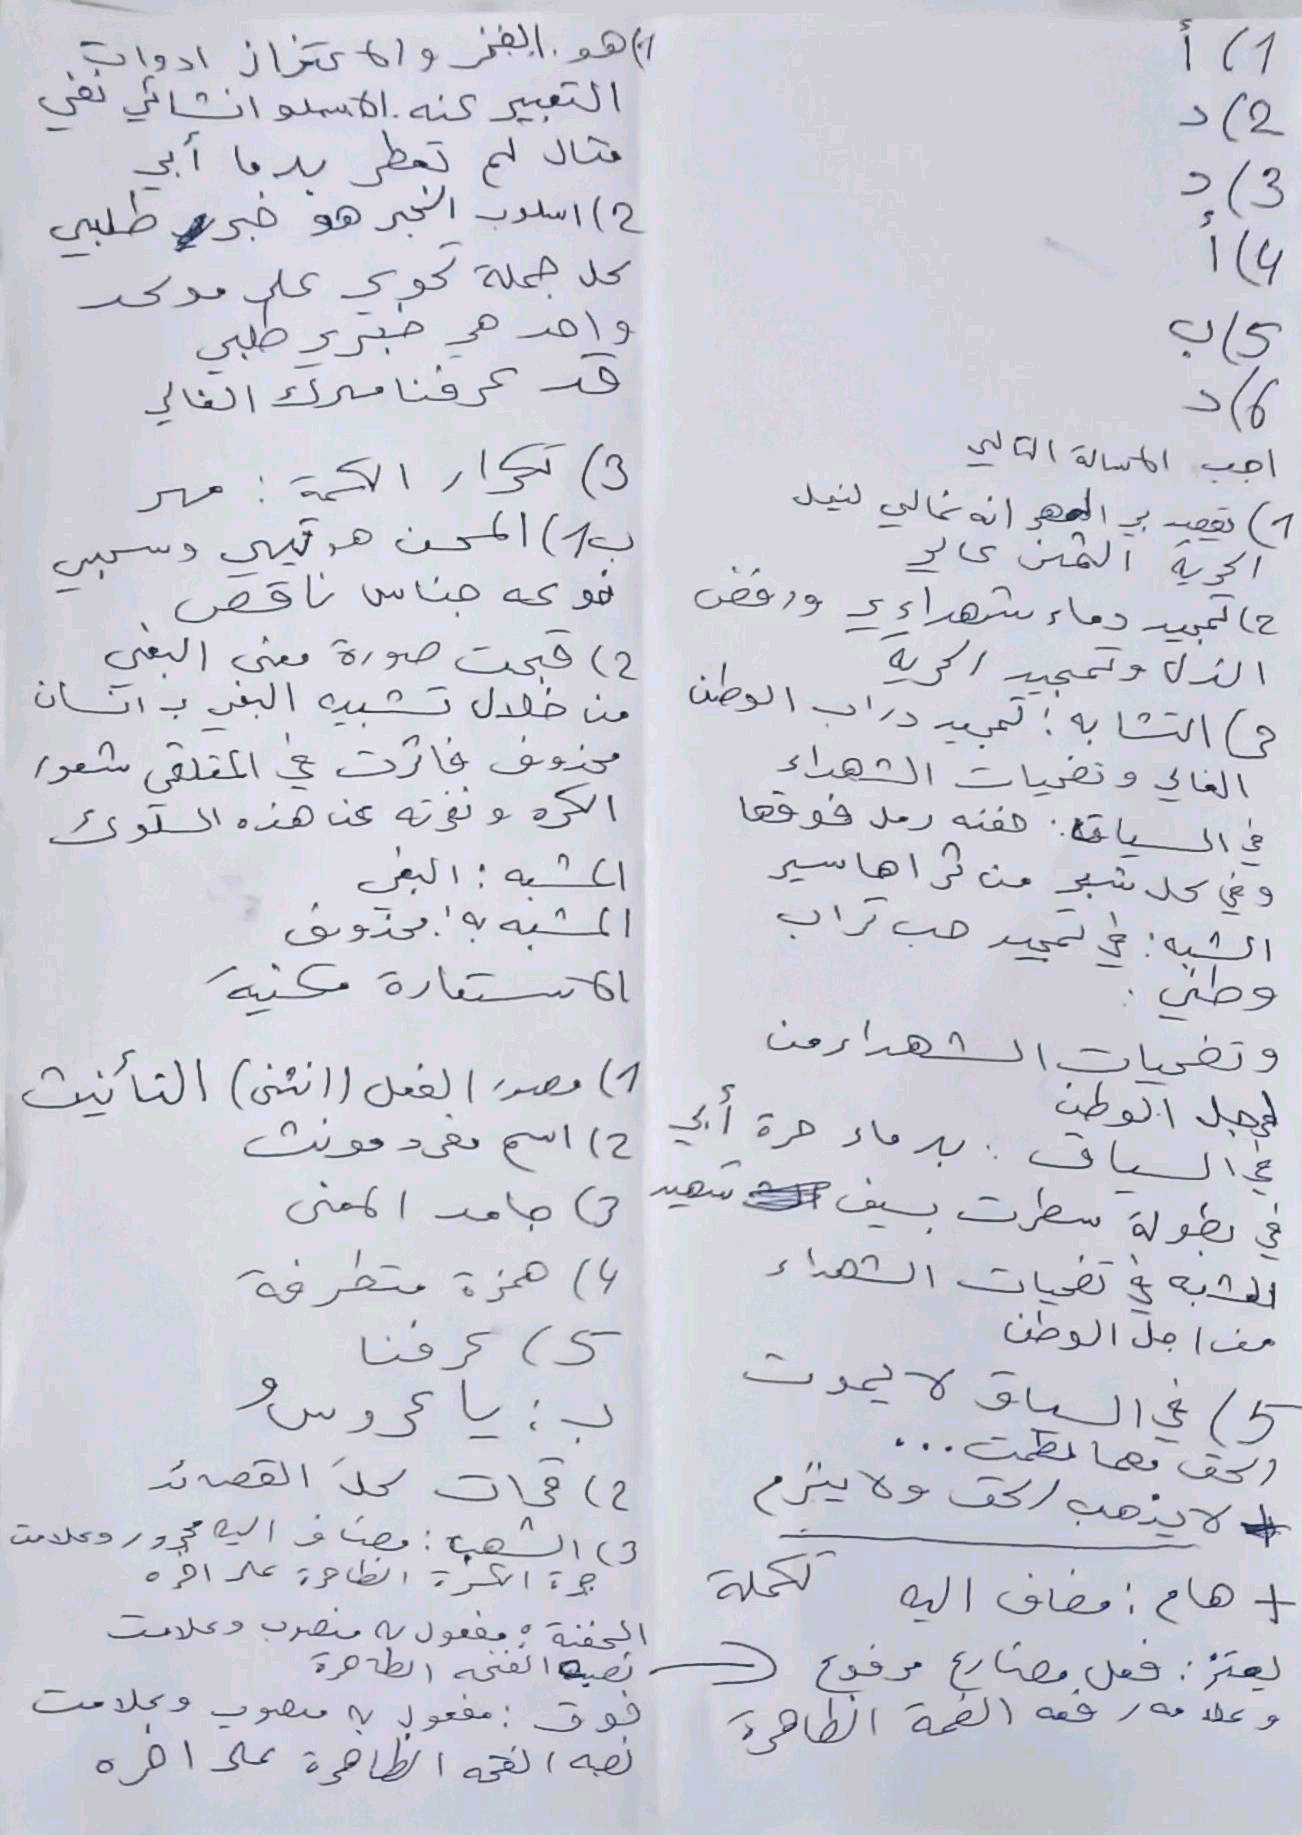 1) أ
2) د
3) د
4) أ
5) ب
6) د
اجب المسالة التالي
1) تقصد ب المهر انه غالي لنيل
الحرية الثمن غالي
2) تمجيد دماء شهداء ورفض
الذل وتمجيد الحرية
3) التشابه: تمجيد دراب الوطن
الغالي وتضحيات الشهداء
في السياق: حفنه رمل فوقها
وفي كل شبر من ثراها سير
الشبه: في تمجيد حب تراب
وطني:
وتضحيات الشهداء من
لاجل الوطن
في السياق: بدماء حرة أبي
في بطولة سطرت بسيف شهيد
الشبه في تضحيات الشهداء
من اجل الوطن
5) في السياق لا يموت
الحق مهما لطمت...
+ لا يذهب الحق ولا ينزم
+ هام: مضاف اليه تكملة
يعتز: فعل مضارع مرفوع
وعلامه رفعه الضمة الظاهرة
1) هو الفخر والاعتزاز ادوات
التعبير عنه الاسلو انشائي نفي
مثال لم تعطر بدما أبي
2) اسلوب الخبر هو خبر طلبي
كل جملة تحوي على موكد
واحد هي خبري طلبي
قد عرفنا مهرك الغالي
3) تكرار الكمة: مهر
ب1) المحسن هو تيهي وسحبي
نوعه جناس ناقص
2) قبحت صورة معنى البغي
من خلال تشبيه البغي ب انسان
محذوف فاثرت في المتلقي شعور
الكره ونفرته عن هذه السلوك
المشبه: البغي
المشبه به: محذوف
الاستعارة مكنية
1) مصدر الفعل (انثنى) التأنيث
2) اسم مفرد مونث
3) جامد المعنى
4) همزة متطرفة
5) عرفنا
ب: يا عروسُ
2) قرات كلَ القصائد
3) الشهب: مضاف اليه مجرور وعلامت
جرة الكسرة الظاهرة على اخره
الحفنة: مفعول به منصوب وعلامت
نصبه الفتحه الظاهرة
فوق: مفعول به منصوب وعلامت
نصبه الفتحه الظاهرة على اخره